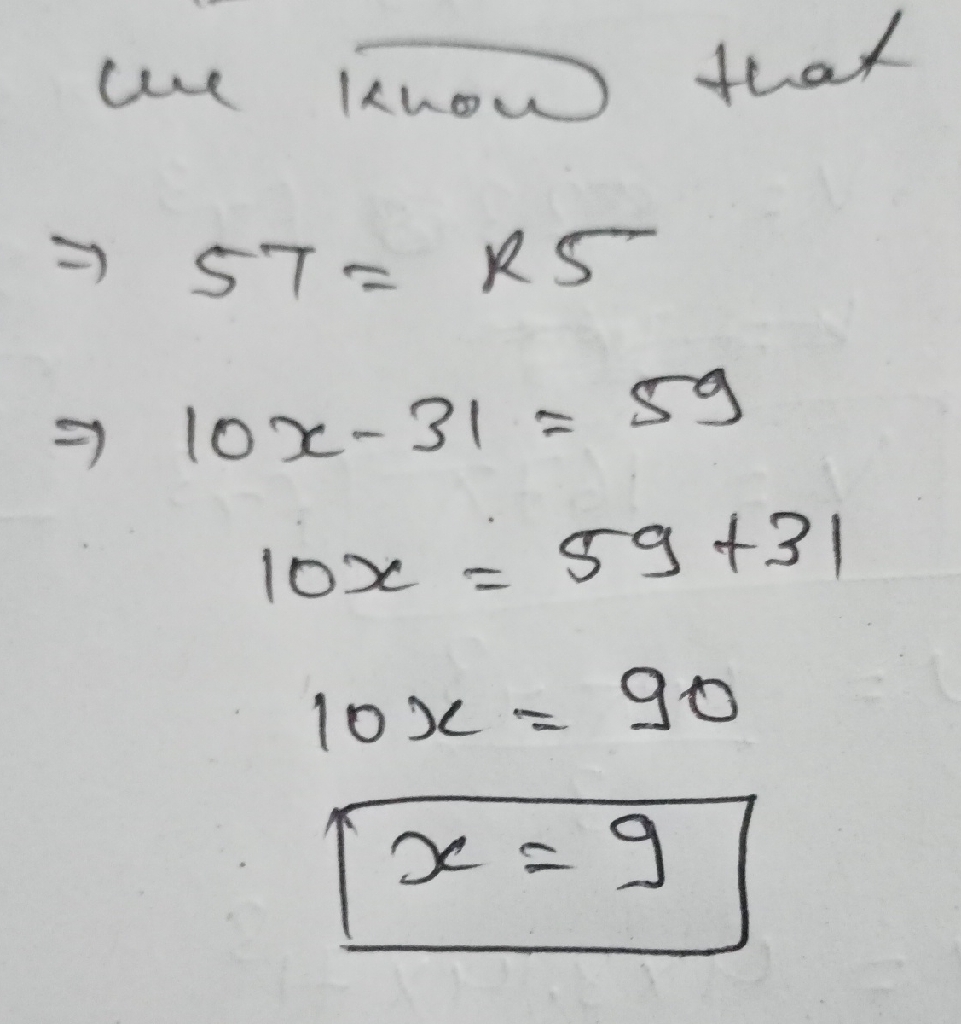 we know that
⇒ ST = RS
⇒ 10x - 31 = 59
10x = 59 + 31
10x = 90
x = 9